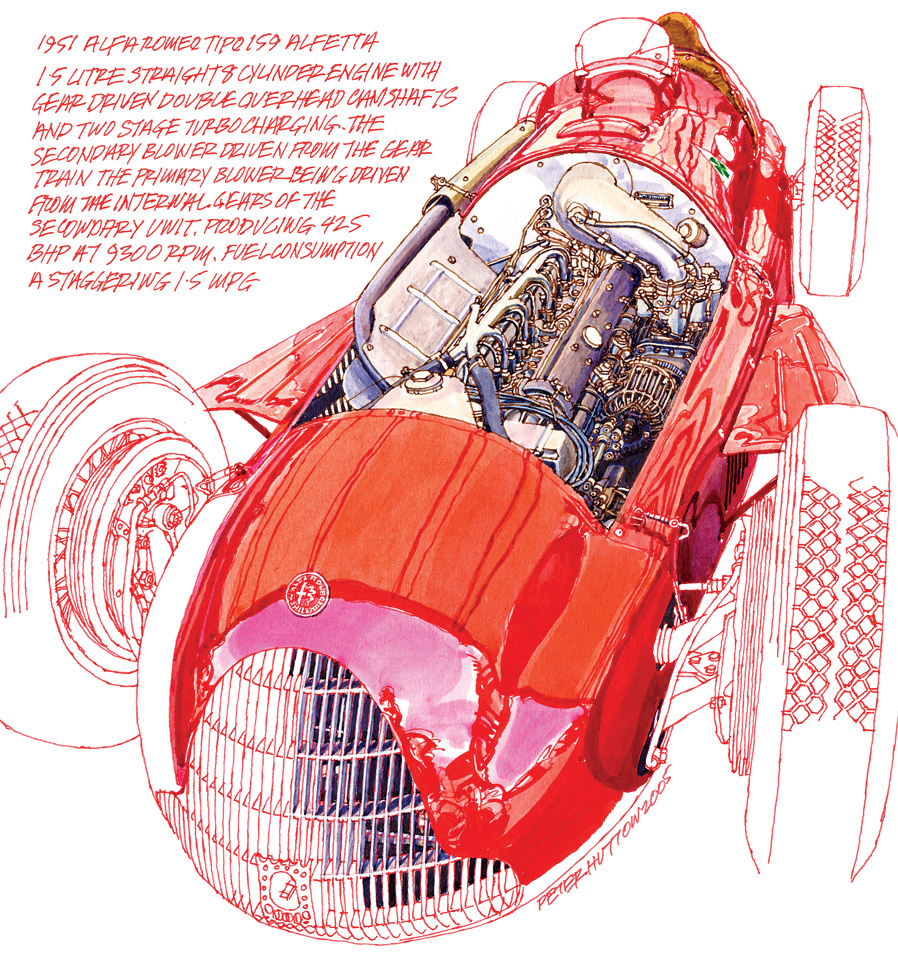 1951 ALFA ROMEO TIPO 159 ALFETTA
1·5 LITRE STRAIGHT 8 CYLINDER ENGINE WITH
GEAR DRIVEN DOUBLE OVERHEAD CAMSHAFTS
AND TWO STAGE TURBOCHARGING. THE
SECONDARY BLOWER DRIVEN FROM THE GEAR
TRAIN THE PRIMARY BLOWER BEING DRIVEN
FROM THE INTERNAL GEARS OF THE
SECONDARY UNIT. PRODUCING 425
BHP AT 9300 RPM. FUEL CONSUMPTION
A STAGGERING 1·5 MPG
PETER HUTTON 2005